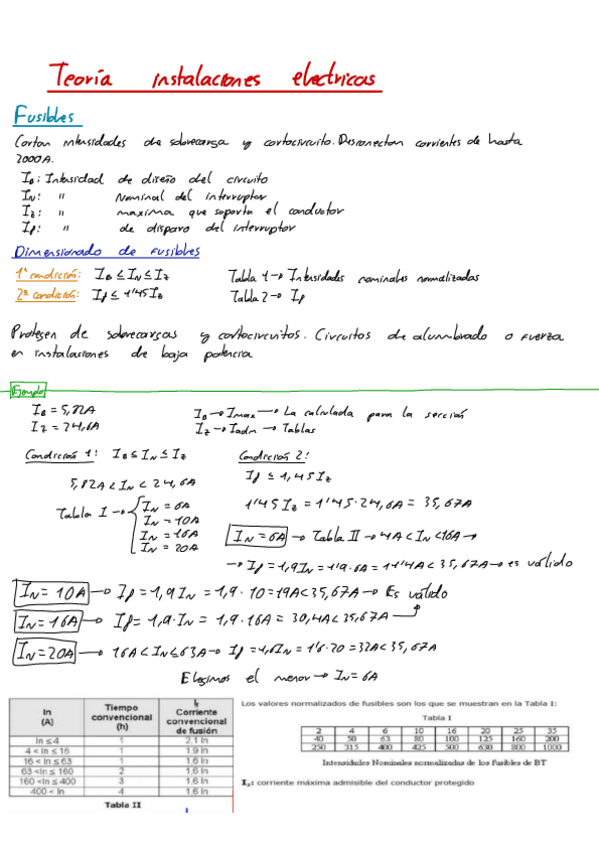 Teoría instalaciones electricas
Fusibles
Cortan intensidades de sobrecarga y cortocircuito. Desconectan corrientes de hasta
2000A.
I_B: Intensidad de diseño del circuito
I_N: " Nominal del interruptor
I_Z: " maxima que soporta el conductor
I_f: " de disparo del interruptor
Dimensionado de fusibles
1ª condición: I_B ≤ I_N ≤ I_Z Tabla 1 → Intensidades nominales normalizadas
2ª condición: I_f ≤ 1'45 I_Z Tabla 2 → I_f
Protegen de sobrecargas y cortocircuitos. Circuitos de alumbrado o fuerza
en instalaciones de baja potencia
Ejemplo
I_B = 5,82A I_B → Imax → La calculada para la sección
I_Z = 24,6A I_Z → Iadm → Tablas
Condición 1: I_B ≤ I_N ≤ I_Z Condición 2:
I_f ≤ 1,45 I_Z
5,82A < I_N < 24,6A
1'45 I_Z = 1'45 · 24,6A = 35,67A
Tabla I → I_N = 6A
I_N = 10A
I_N = 16A
I_N = 20A
I_N = 6A → Tabla II → 4A < I_N < 16A →
→ I_f = 1,9 I_N = 1'9 · 6A = 11'4A < 35,67A → es válido
I_N = 10A → I_f = 1,9 I_N = 1,9 · 10 = 19A < 35,67A → Es válido
I_N = 16A → I_f = 1,9 · I_N = 1,9 · 16A = 30,4A < 35,67A
I_N = 20A → 16A < I_N ≤ 63A → I_f = 1,6 I_N = 1'6 · 20 = 32A < 35,67A
Elegimos el menor → I_N = 6A
In (A) Tiempo convencional (h) If Corriente convencional de fusión
In ≤ 4 1 2.1 In
4 < In ≤ 16 1 1.9 In
16 < In ≤ 63 1 1.6 In
63 < In ≤ 160 2 1.6 In
160 < In ≤ 400 3 1.6 In
400 < In 4 1.6 In
Tabla II
Los valores normalizados de fusibles son los que se muestran en la Tabla I:
Tabla I
2 4 6 10 16 20 25 35
40 50 63 80 100 125 160 200
250 315 400 425 500 630 800 1000
Intensidades Nominales normalizadas de los fusibles de BT
I_Z: corriente máxima admisible del conductor protegido